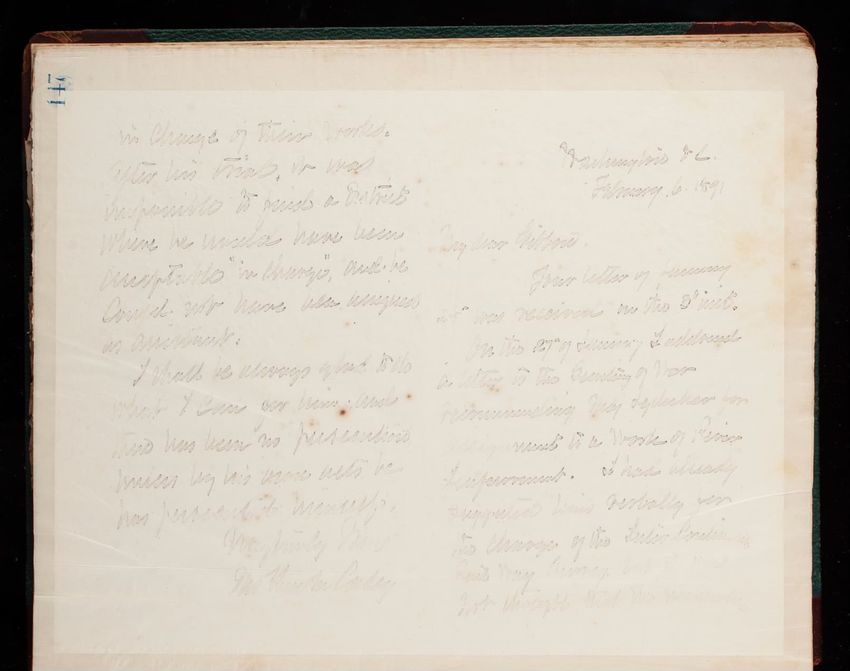 147
in charge of their works.
After his trial, it was
impossible to find a District
where he would have been
acceptable "in charge", and he
could not have been assigned
as assistant.
I shall be always glad to do
what I can for him; and
there has been no persecution
unless by his own acts he
has persecuted himself.
Very truly Yours
Thos Lincoln Casey
Washington D.C.
February 6. 1891
My dear Gibbon.
Your letter of January
was received on the 3d inst.
On the 27th of January I addressed
a letter to the Secretary of War
recommending Maj for
to a Work of River
Improvement. I had already
suggested him verbally for
the charge of the Inter Continental
Rail Way Survey, but it was
not thought that the